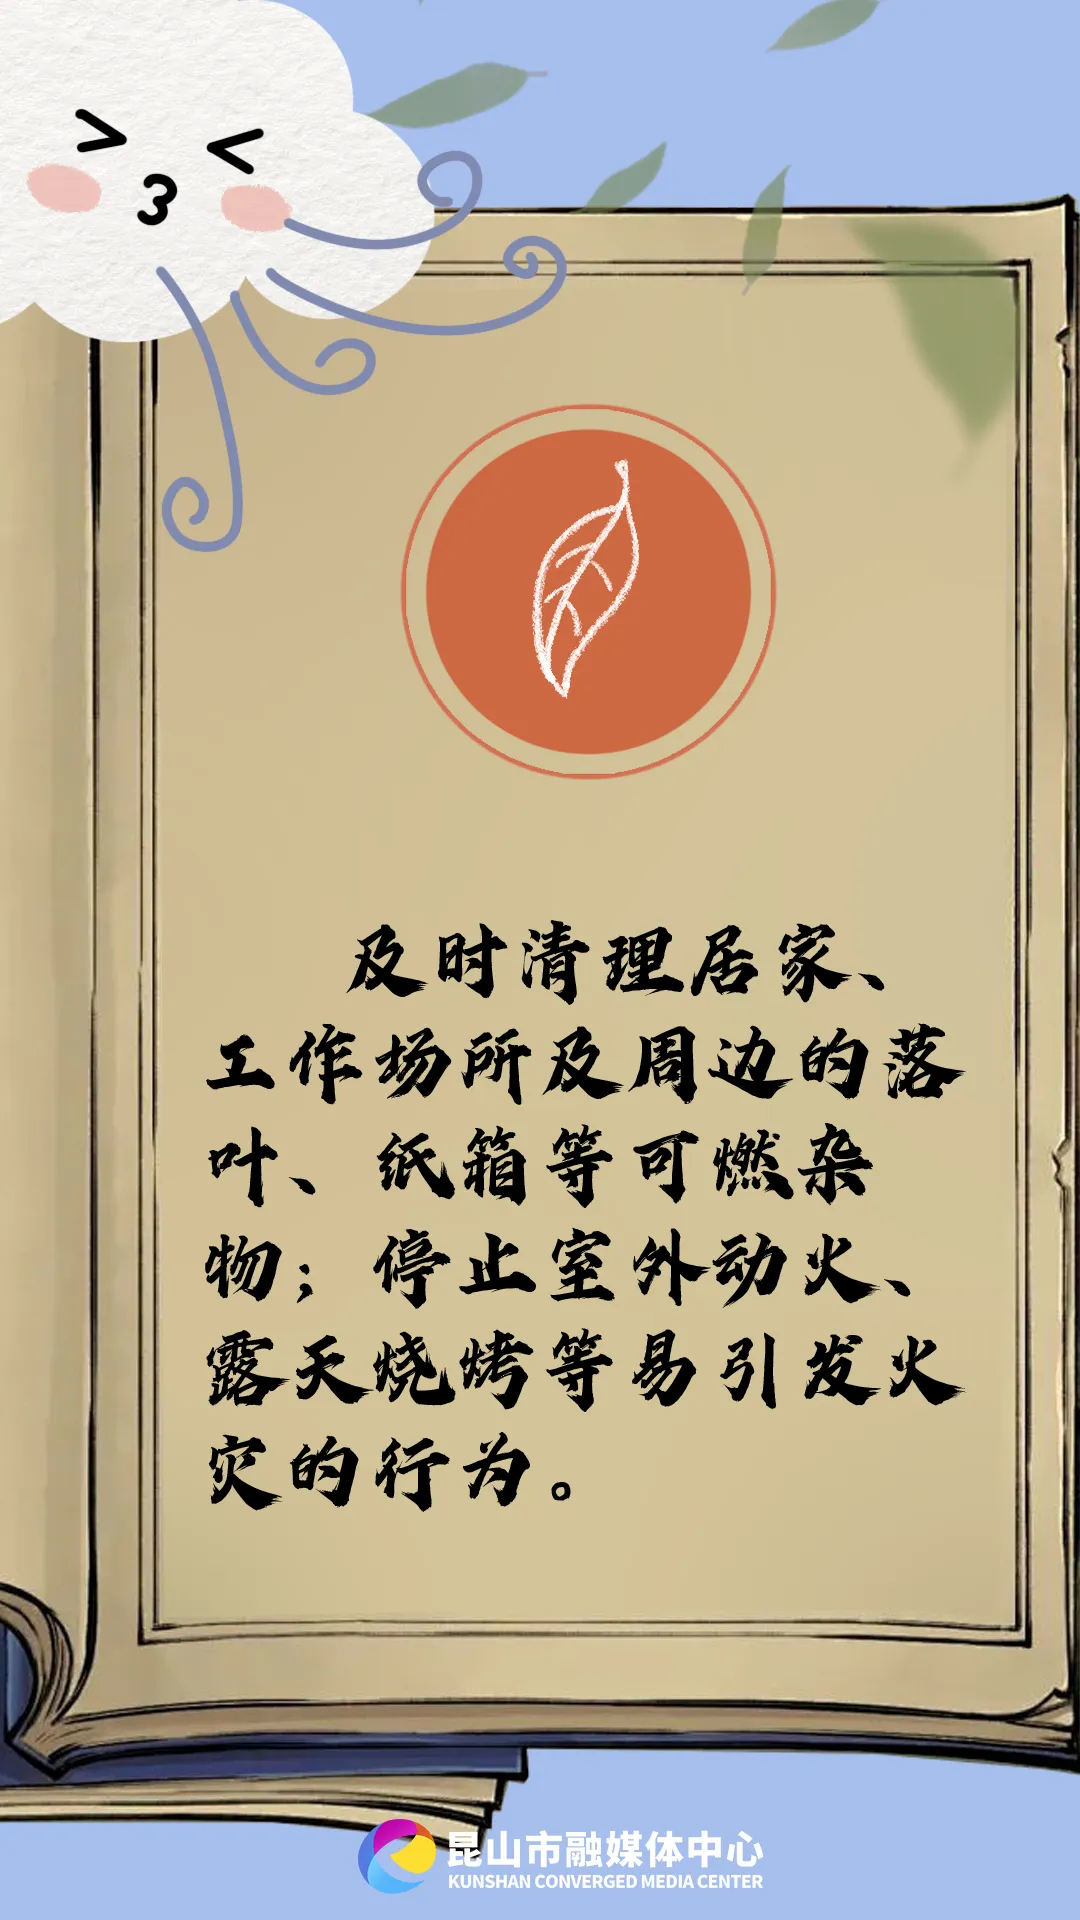 及时清理居家、
工作场所及周边的落
叶、纸箱等可燃杂
物；停止室外动火、
露天烧烤等易引发火
灾的行为。
昆山市融媒体中心
KUNSHAN CONVERGED MEDIA CENTER